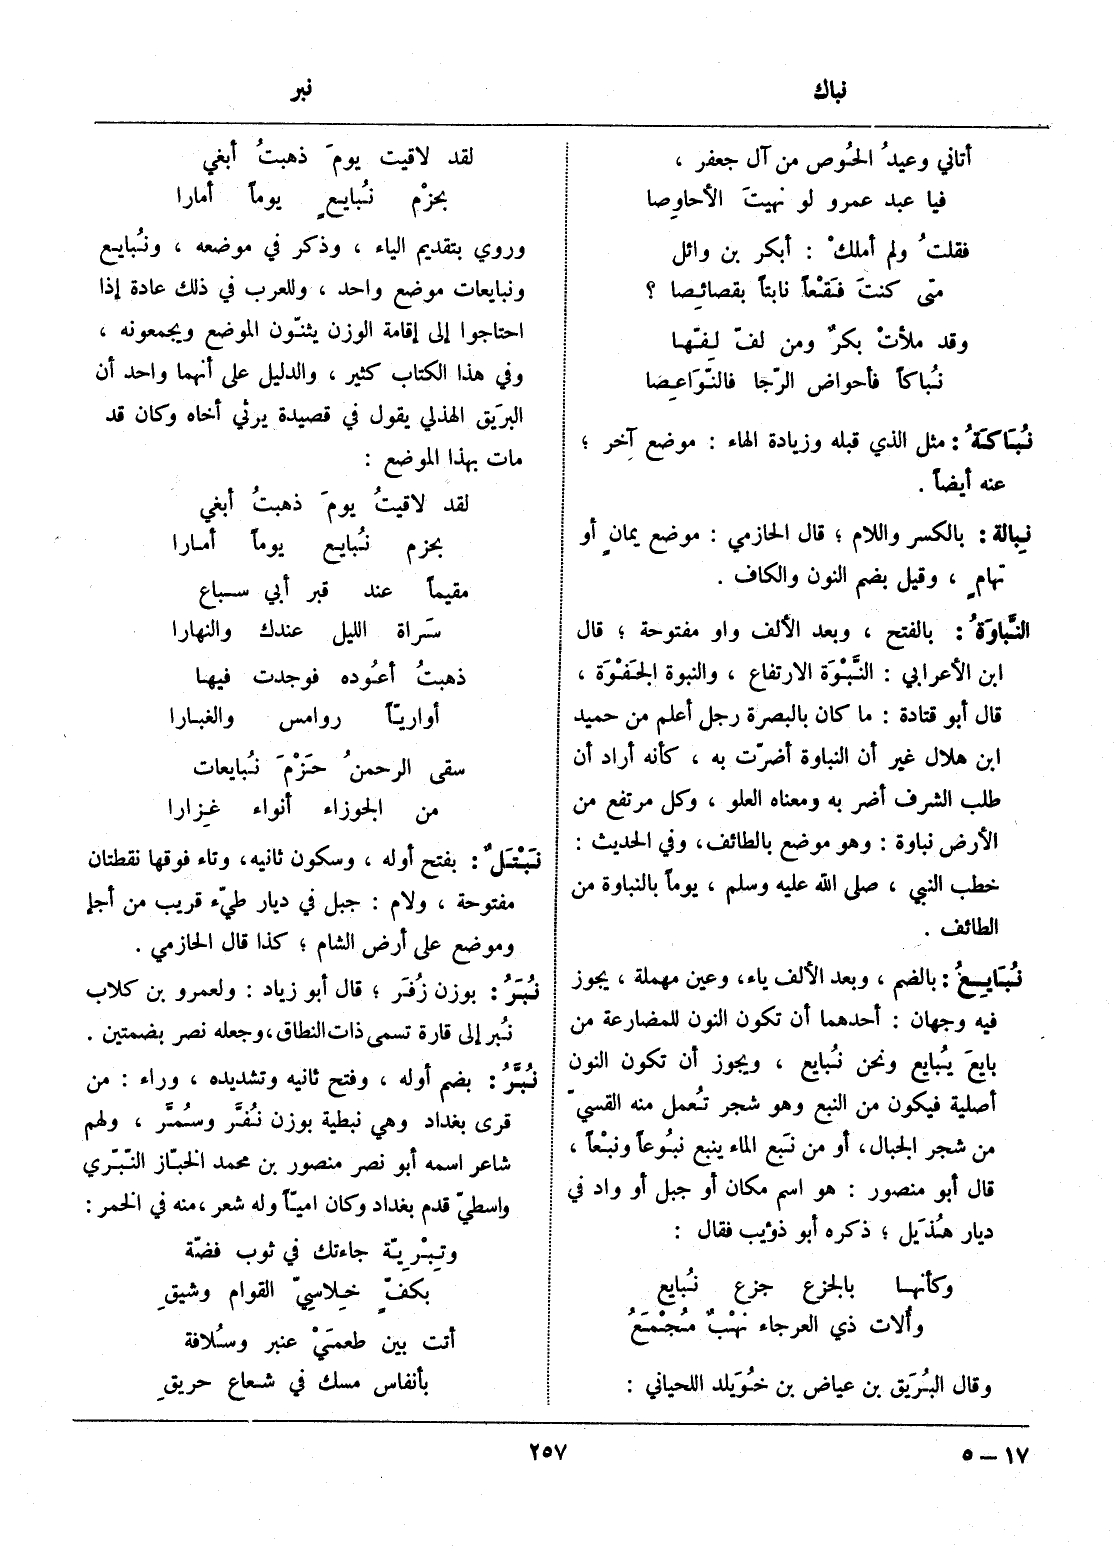 نباك
نبر
أتاني وعيدُ الحُوص من آل جعفر ،
فيا عبد عمرو لو نهيتَ الأحاوِصا
فقلتُ ولم أملكْ : أبكر بن وائل
متى كنتَ فَقْعاً نابتاً بقصائِصا ؟
وقد ملأتْ بكرٌ ومن لفّ لِفّها
نُباكاً فأحواض الرّجا فالنّواعِصا
نُبَاكَةُ : مثل الذي قبله وزيادة الهاء : موضع آخر ؛
عنه أيضاً .
نِبالة : بالكسر واللام ؛ قال الحازمي : موضع يمانٍ أو
تهامٍ ، وقيل بضم النون والكاف .
النَّباوَةُ : بالفتح ، وبعد الألف واو مفتوحة ؛ قال
ابن الأعرابي : النَّبْوَة الارتفاع ، والنبوة الجَفْوَة ،
قال أبو قتادة : ما كان بالبصرة رجل أعلم من حميد
ابن هلال غير أن النباوة أضرّت به ، كأنه أراد أن
طلب الشرف أضر به ومعناه العلو ، وكل مرتفع من
الأرض نباوة : وهو موضع بالطائف، وفي الحديث :
خطب النبي ، صلى الله عليه وسلم ، يوماً بالنباوة من
الطائف .
نُبَايِعُ : بالضم ، وبعد الألف ياء، وعين مهملة ، يجوز
فيه وجهان : أحدهما أن تكون النون للمضارعة من
بايعَ يُبايع ونحن نُبايع ، ويجوز أن تكون النون
أصلية فيكون من النبع وهو شجر تُعمل منه القسيّ
من شجر الجبال، أو من نَبع الماء ينبع نبُوعاً ونبْعاً ،
قال أبو منصور : هو اسم مكان أو جبل أو واد في
ديار هُذَيل ؛ ذكره أبو ذؤيب فقال :
وكأنها بالجزع جزع نُبايع
وأُلات ذي العرجاء نَهْبٌ مُجْمَعُ
وقال البُرَيق بن عياض بن خُوَيلد اللحياني :
لقد لاقيت يومَ ذهبتُ أبغي
بحزْم نُبايعٍ يوماً أمارا
وروي بتقديم الياء ، وذكر في موضعه ، ونُبايع
ونبايعات موضع واحد ، وللعرب في ذلك عادة إذا
احتاجوا إلى إقامة الوزن يثنّون الموضع ويجمعونه ،
وفي هذا الكتاب كثير ، والدليل على أنهما واحد أن
البرَيق الهذلي يقول في قصيدة يرثي أخاه وكان قد
مات بهذا الموضع :
لقد لاقيتُ يومَ ذهبتُ أبغي
بحزم نُبايع يوماً أمارا
مقيماً عند قبر أبي سباع
سَراة الليل عندك والنهارا
ذهبتُ أعُوده فوجدت فيها
أواريّاً روامس والغبارا
سقى الرحمنُ حَزْمَ نُبايعات
من الجوزاء أنواء غِزارا
نَبْتَلٌ : بفتح أوله ، وسكون ثانيه، وتاء فوقها نقطتان
مفتوحة ، ولام : جبل في ديار طيّء قريب من أجإ
وموضع على أرض الشام ؛ كذا قال الحازمي .
نُبَرُ : بوزن زُفَر ؛ قال أبو زياد : ولعمرو بن كلاب
نُبر إلى قارة تسمى ذات النطاق،وجعله نصر بضمتين .
نُبَّرُ : بضم أوله ، وفتح ثانيه وتشديده ، وراء : من
قرى بغداد وهي نبطية بوزن نُفَّر وسُمَّر ، ولهم
شاعر اسمه أبو نصر منصور بن محمد الخبّاز النّبّري
واسطيّ قدم بغداد وكان اميّاً وله شعر ،منه في الخمر :
وتِبْرِيّة جاءتك في ثوب فضّة
بكفّ خِلاسيّ القوام وشيقِ
أتت بين طعمَيْ عنبر وسُلافة
بأنفاس مسك في شعاع حريقِ
١٧ – ٥
٢٥٧